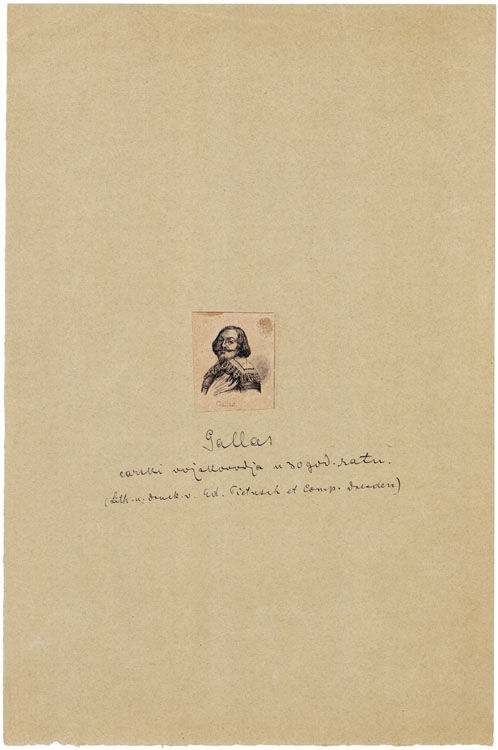 Gallas
Gallas
carski vojskovodja u 30 god. ratu.
(Lith. u. Druck v. Ed. Pietzsch et Comp. Dresden)